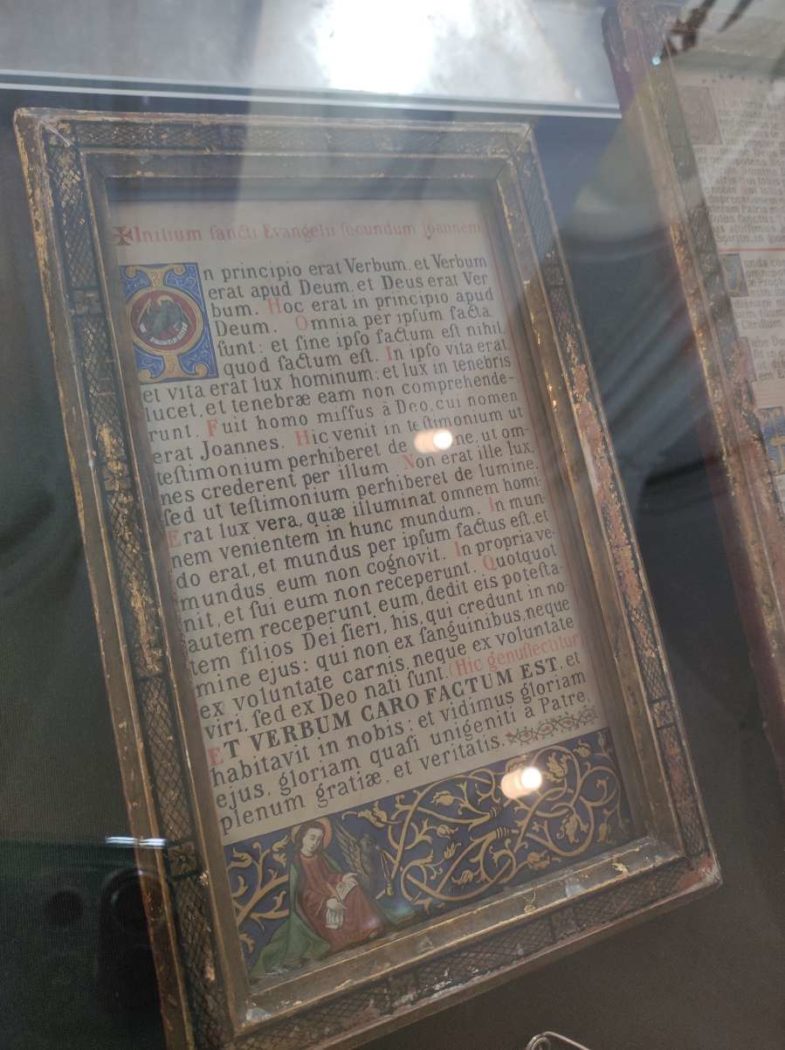 ✠Initium sancti Evangelii secundum Joannem
In principio erat Verbum, et Verbum
erat apud Deum, et Deus erat Ver
bum. Hoc erat in principio apud
Deum. Omnia per ipsum facta
sunt: et sine ipso factum est nihil,
quod factum est. In ipso vita erat,
et vita erat lux hominum: et lux in tenebris
lucet, et tenebræ eam non comprehende-
runt. Fuit homo missus à Deo, cui nomen
erat Joannes. Hic venit in testimonium ut
testimonium perhiberet de ne, ut om-
nes crederent per illum. Non erat ille lux,
sed ut testimonium perhiberet de lumine.
Erat lux vera, quæ illuminat omnem homi-
nem venientem in hunc mundum. In mun-
do erat, et mundus per ipsum factus est, et
mundus eum non cognovit. In propria ve-
nit, et sui eum non receperunt. Quotquot
autem receperunt eum, dedit eis potesta-
tem filios Dei fieri, his, qui credunt in no
mine ejus: qui non ex sanguinibus, neque
ex voluntate carnis, neque ex voluntate
viri, sed ex Deo nati sunt. (Hic genuflectitur
ET VERBUM CARO FACTUM EST, et
habitavit in nobis: et vidimus gloriam
ejus, gloriam quasi unigeniti à Patre,
plenum gratiæ, et veritatis.